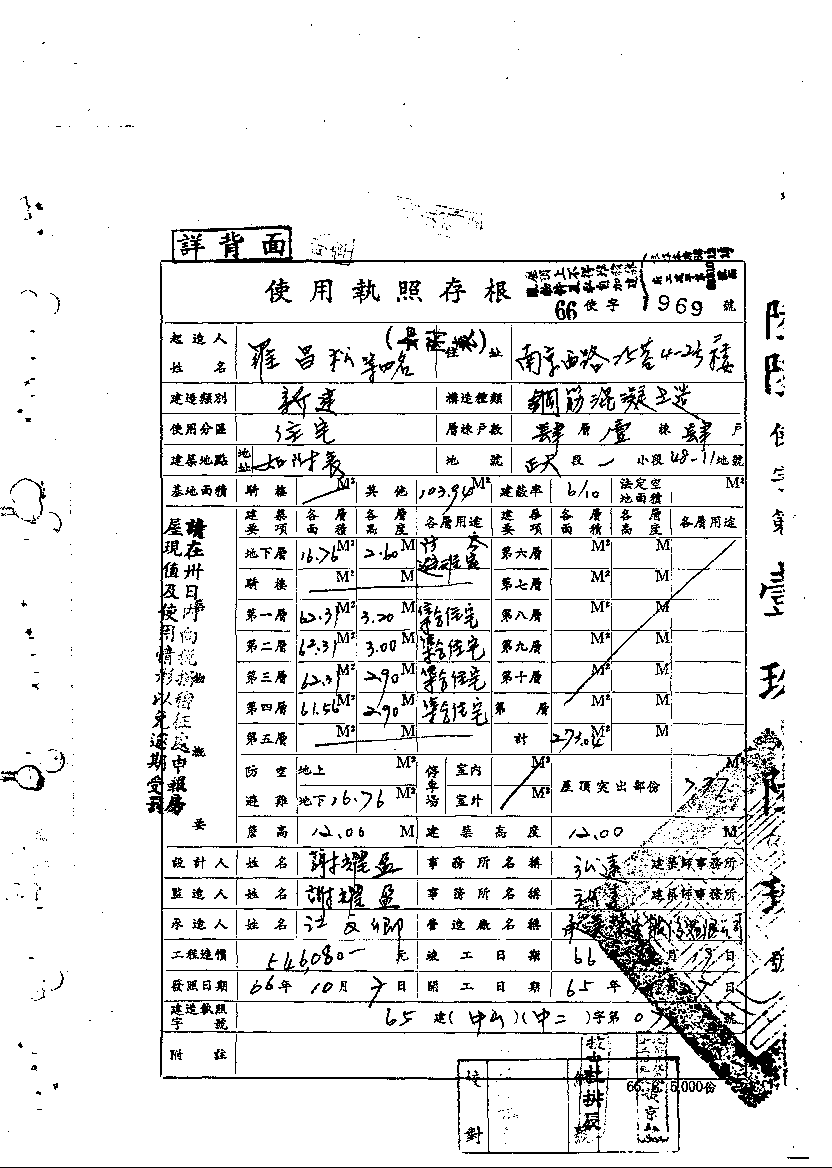 詳背面
使用執照存根
66 使字 1969 號
起造人姓名 羅昌松等四名 住址 南京西路25巷4-2號二樓
建造類別 新建 構造種類 鋼筋混凝土造
使用分區 住宅 層棟戶數 肆層壹棟肆戶
建築地點 地址 如附表 地號 段一小段48-11地號
基地面積 騎樓 M² 其他 103.94 M² 建蔽率 6/10 法定空地面積 M²
建築要項 各層面積 各層高度 各層用途 建築要項 各層面積 各層高度 各層用途
地下層 16.76 M² 2.60 M 防空避難室 第六層 M² M
騎樓 M² M 第七層 M² M
第一層 62.31 M² 3.20 M 集合住宅 第八層 M² M
第二層 62.31 M² 3.00 M 集合住宅 第九層 M² M
第三層 62.31 M² 2.90 M 集合住宅 第十層 M² M
第四層 61.56 M² 2.90 M 集合住宅 第 層 M² M
第五層 M² M 計 273.04 M² M
防空避難 地上 M² 地下 16.76 M² 停車場 室內 M² 室外 M² 屋頂突出部份 7.77 M²
簷高 12.00 M 建築高度 12.00 M
設計人 姓名 謝耀盈 事務所名稱 弘達 建築師事務所
監造人 姓名 謝耀盈 事務所名稱 弘達 建築師事務所
承造人 姓名 江 鄉 營造廠名稱
工程造價 546,080- 元 竣工日期 66 月 19 日
發照日期 66年10月7日 開工日期 65年 日
建造執照字號 65 建(中山)(中二)字第 0 號
附註
請在卅日內向稅捐稽征處申報房
屋現值及使用情形以免逾期受罰
概要
66. 6. 5,000份
校對
陸陸使字第壹玖陸玖號